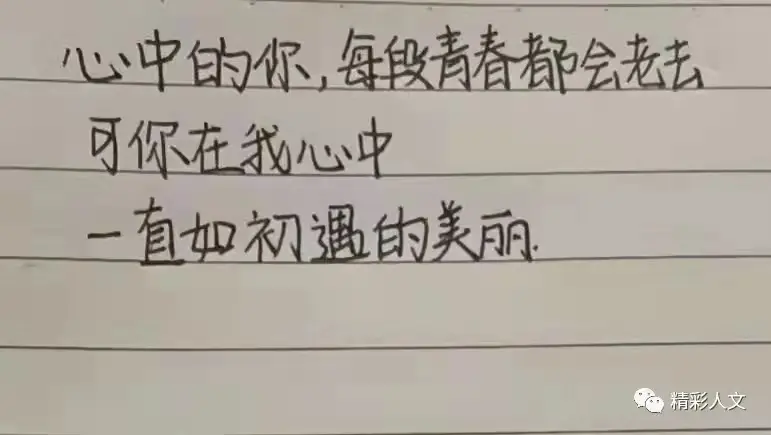 心中的你,每段青春都会老去
可你在我心中
一直如初遇的美丽.
精彩人文